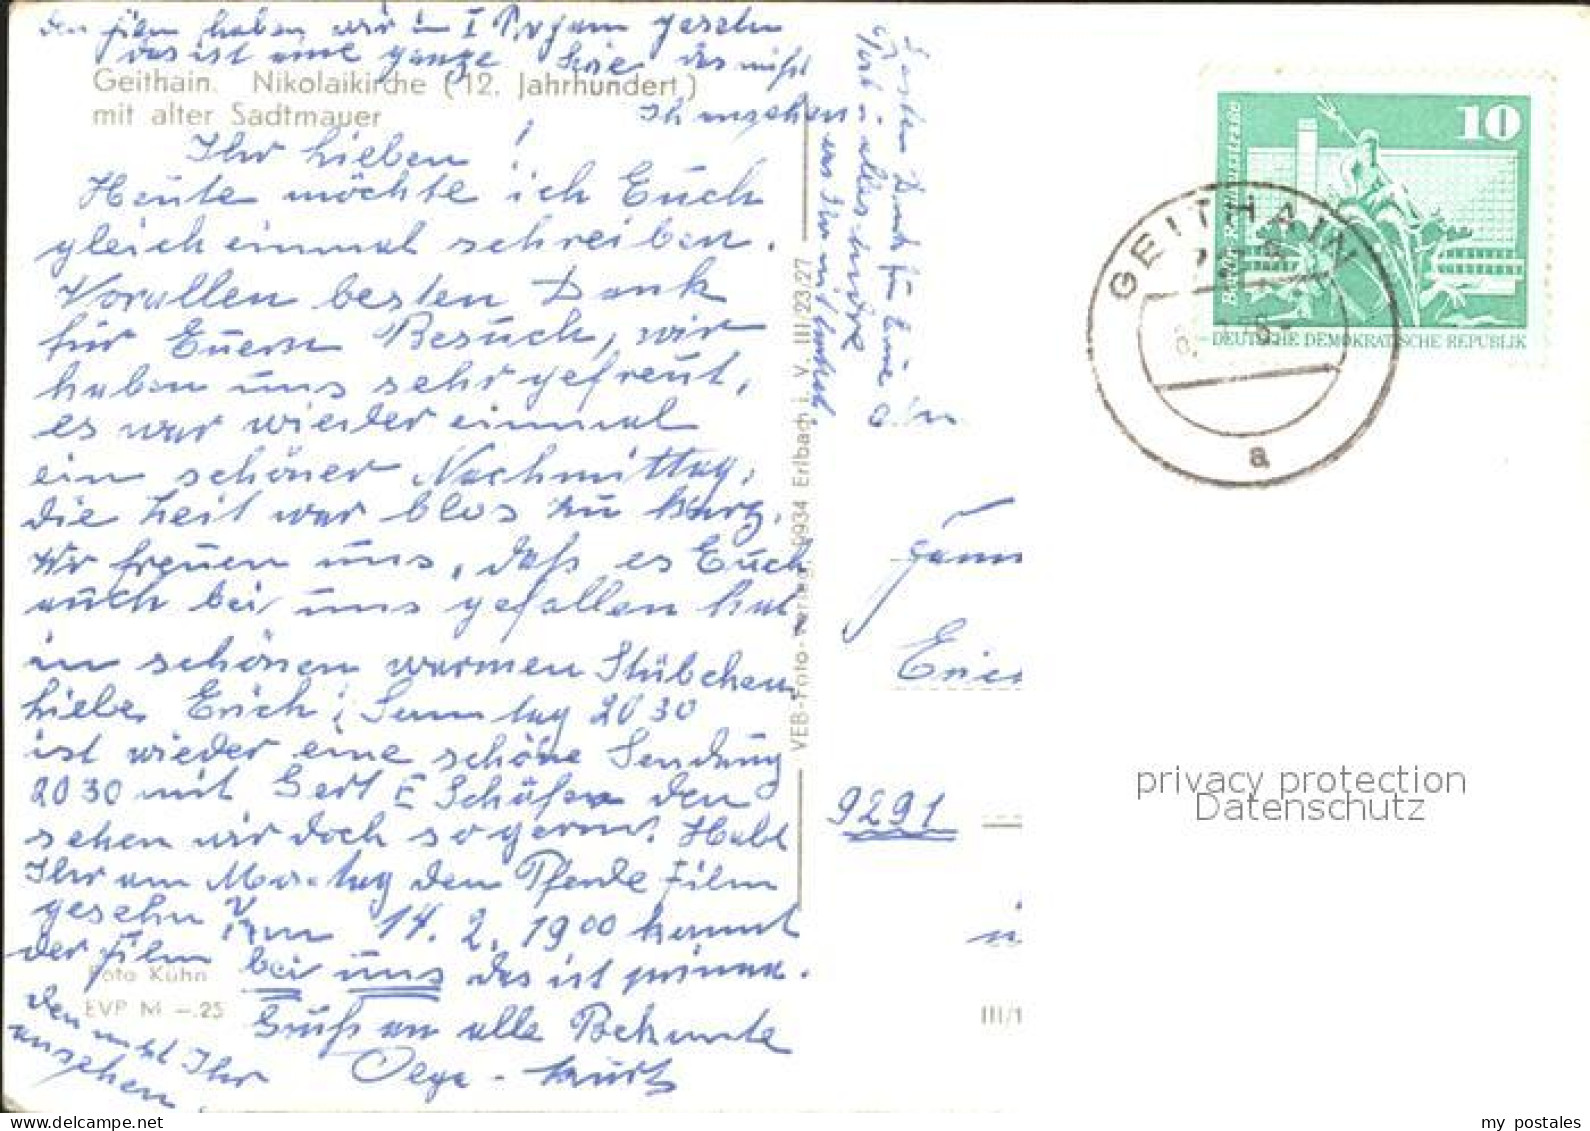 den Film haben wir in I Program gesehn
das ist eine ganze Serie das müßt
Ihr ansehen
Geithain. Nikolaikirche (12. Jahrhundert)
mit alter Sadtmauer
Ihr Lieben!
Heute möchte ich Euch
gleich einmal schreiben.
Vorallen besten Dank
für Euern Besuch, wir
haben uns sehr gefreut,
es war wieder einmal
ein schöner Nachmittag,
die Zeit war blos zu kurz.
Wir freuen uns, daß es Euch
auch bei uns gefallen hat,
in schönen warmen Stübchen
Liebe Erich, Samstag 20 30
ist wieder eine schöne Sendung
20 30 mit Gert E Schäfer den
sehen wir doch so gerne. Habt
Ihr am Montag den Pferde Film
gesehn? Am 14. 2. 19 00 kommt
der Film bei uns das ist prima.
den müßt Ihr
ansehen.
Gruß an alle Bekannte
Olga - Kurt
Foto Kühn
EVP M -.25
Besten Dank für Eure
alles andere
VEB-Foto-Verlag, 9934 Erlbach i. V. III 23/27
10
Berlin, Rathausstraße
DEUTSCHE DEMOKRATISCHE REPUBLIK
GEITHAIN
a
Fam
9291
III/1
privacy protection
Datenschutz
my postales